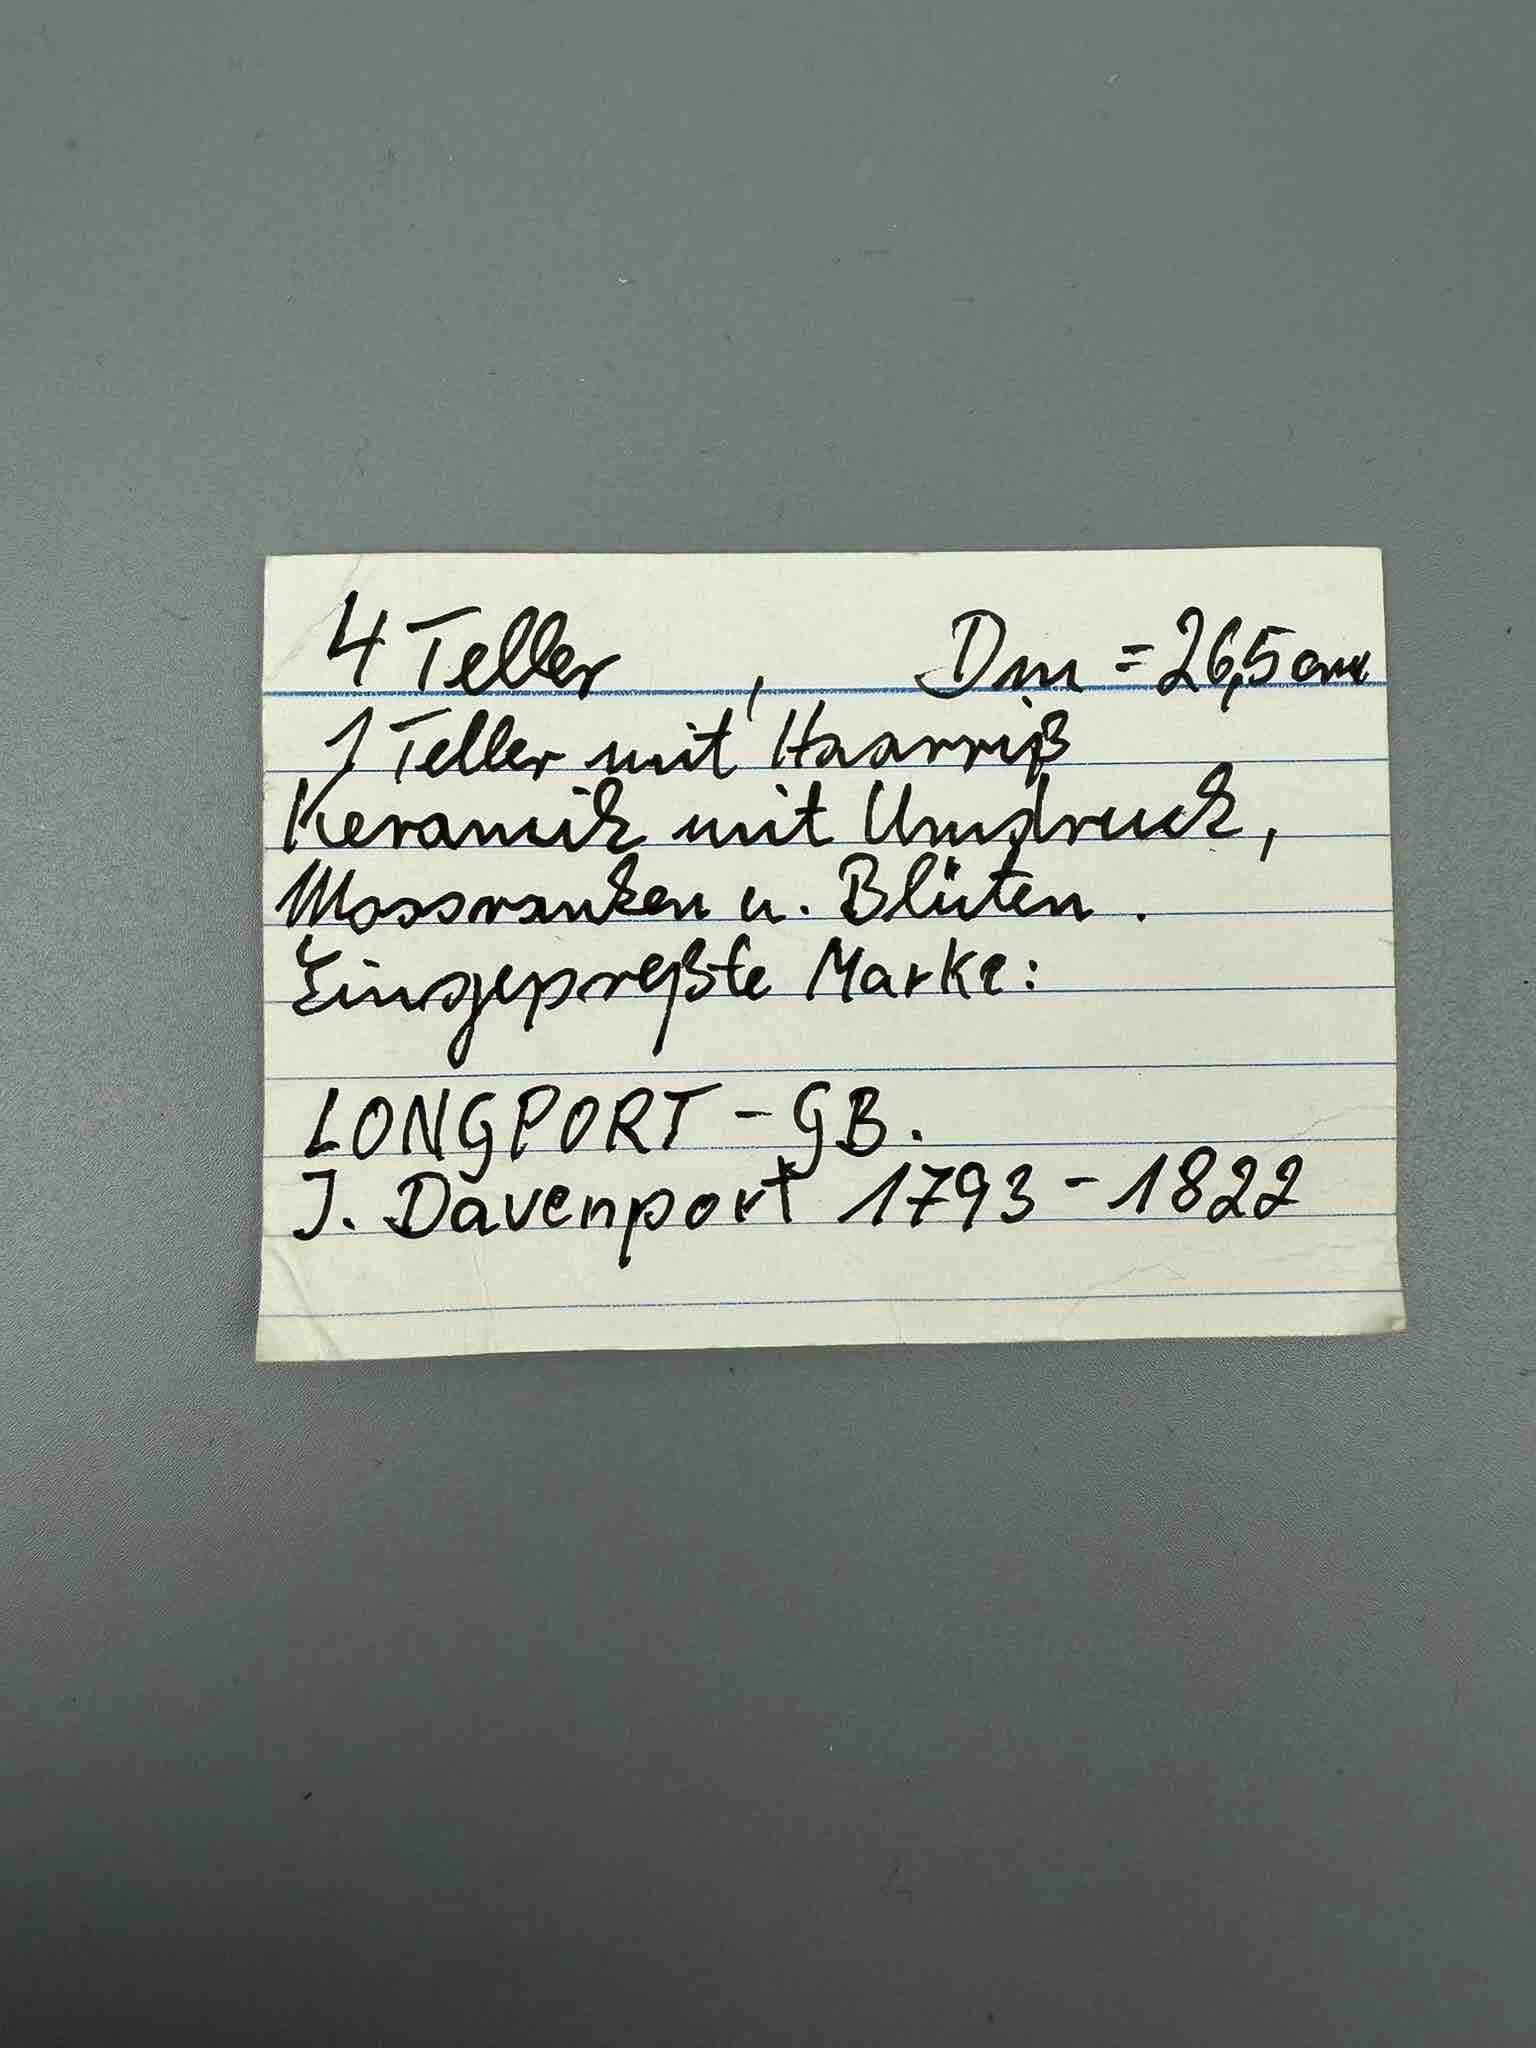 4 Teller , Dm = 26,5 cm
1 Teller mit Haarriß
Keramik mit Umdruck,
Moosranken u. Blüten.
Eingepreßte Marke:
LONGPORT - GB.
J. Davenport 1793 - 1822